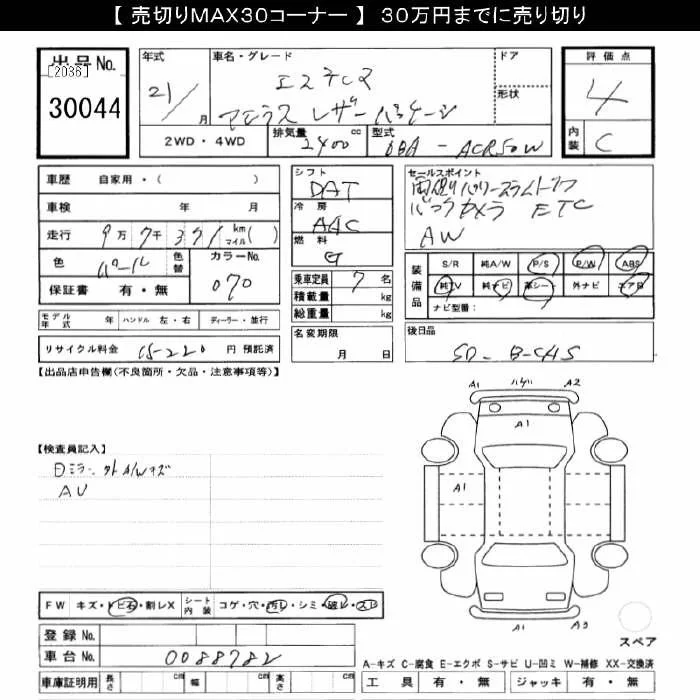 【 売切りMAX30コーナー 】 30万円までに売り切り
出品No.
[2036]
30044
年式
21/
月
車名・グレード
エスティマ
アエラス レザーパッケージ
ドア
形状
2WD・4WD
排気量
2400
cc
型式
DBA-ACR50W
評価点
4
内装
C
車歴 自家用・( )
車検 年 月
走行 9万7千371 km マイル( )
色 パール 色替
カラーNo. 070
保証書 有・無
モデル年式 年 ハンドル 左・右 ディーラー・並行
リサイクル料金 15-220 円 預託済
シフト
DAT
冷房
AAC
燃料
G
乗車定員 7 名
積載量 kg
総重量 kg
名変期限
月 日
セールスポイント
両側パワースライドドア
バックカメラ ETC
AW
装備品
S/R 純A/W P/S P/W ABS
純TV 純ナビ 革シート 外ナビ エアB
ナビ型番: -
後日品
SD- B-CHS
【出品店申告欄(不良箇所・欠品・注意事項等)】
【検査員記入】
外A/Wキズ
AU
A1 A2
A1
A1
A1
スペア
FW キズ・トビ石・割レX
シート内装 コゲ・穴・汚レ・シミ・破レ・スレ
登録 No.
車台 No. 0088782
車庫証明用 長さ cm 幅 cm 高さ cm
A-キズ C-腐食 E-エクボ S-サビ U-凹ミ W-補修 XX-交換済
工具 有・無 ジャッキ 有・無